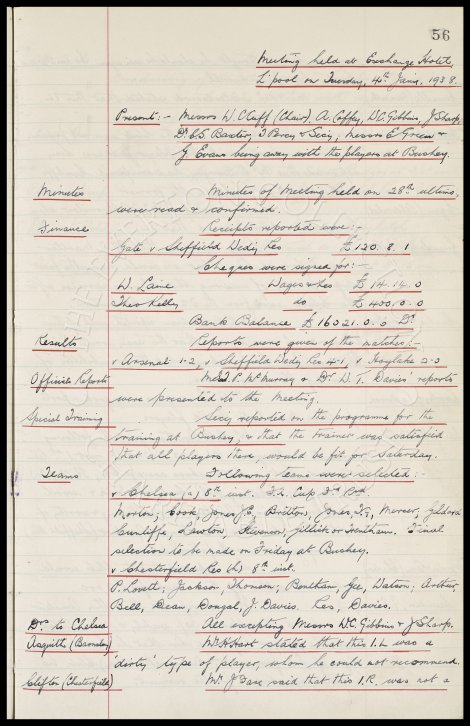 56
Meeting held at Exchange Hotel,
L'pool on Tuesday, 4th Jany. 1938.
Present:- Messrs W. Cuff (Chair), A. Coffey, W.C. Gibbins, J. Sharp,
Dr. C.S. Baxter, T. Percy & Secy, Messrs E. Green &
G. Evans being away with the players at Bushey.
Minutes Minutes of Meeting held on 28th ultimo,
were read & confirmed.
Finance Receipts reported were:-
Gate v Sheffield Wedy Res £120. 8. 1
Cheques were signed for:-
W. Lane Wages chos £ 14. 14. 0
Theo Kelly do £ 400. 0. 0
Bank Balance £ 16021. 0. 0 Dr.
Results Reports were given of the matches:-
v Arsenal 1-2, v Sheffield Wedy Res 4-1, v Hoylake 2-0
Officials Reports Messrs J.P. McMurray & Dr. W.T. Davies reports
were presented to the Meeting.
Special Training Secy reported on the programme for the
training at Bushey, & that the trainer was satisfied
that all players there, would be fit for Saturday.
Teams Following teams were selected:-
v Chelsea (a) 8th inst. F.A. Cup 3rd Rnd.
Morton; Cook, Jones J.E, Britton, Jones T.G, Mercer, Geldard
Cunliffe, Lawton, Stevenson, Gillick or Trentham. Final
selection to be made on Friday at Bushey.
v Chesterfield Res (h) 8th inst.
P. Lovett; Jackson, Thomson; Bentham, Gee, Watson; Arthur,
Bell, Dean, Dougal, J. Davies. Res, Davies.
Drs to Chelsea All excepting Messrs W.C. Gibbins & J. Sharp.
Asquith (Barnsley) Mr. H. Hart stated that this I.L was a
'dirty' type of player, whom he could not recommend.
Clifton (Chesterfield) Mr. J. Fare said that this I.R. was not a